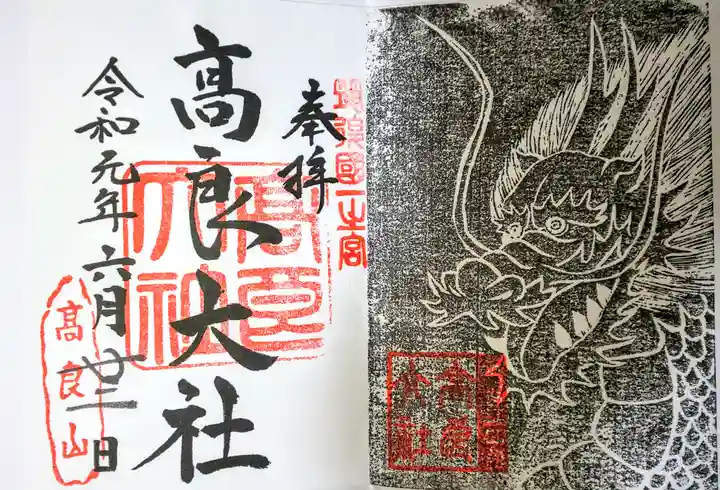 筑後國一之宮
奉拝
髙良大社
高良大社
令和元年六月廿二日
髙良山
高良大社